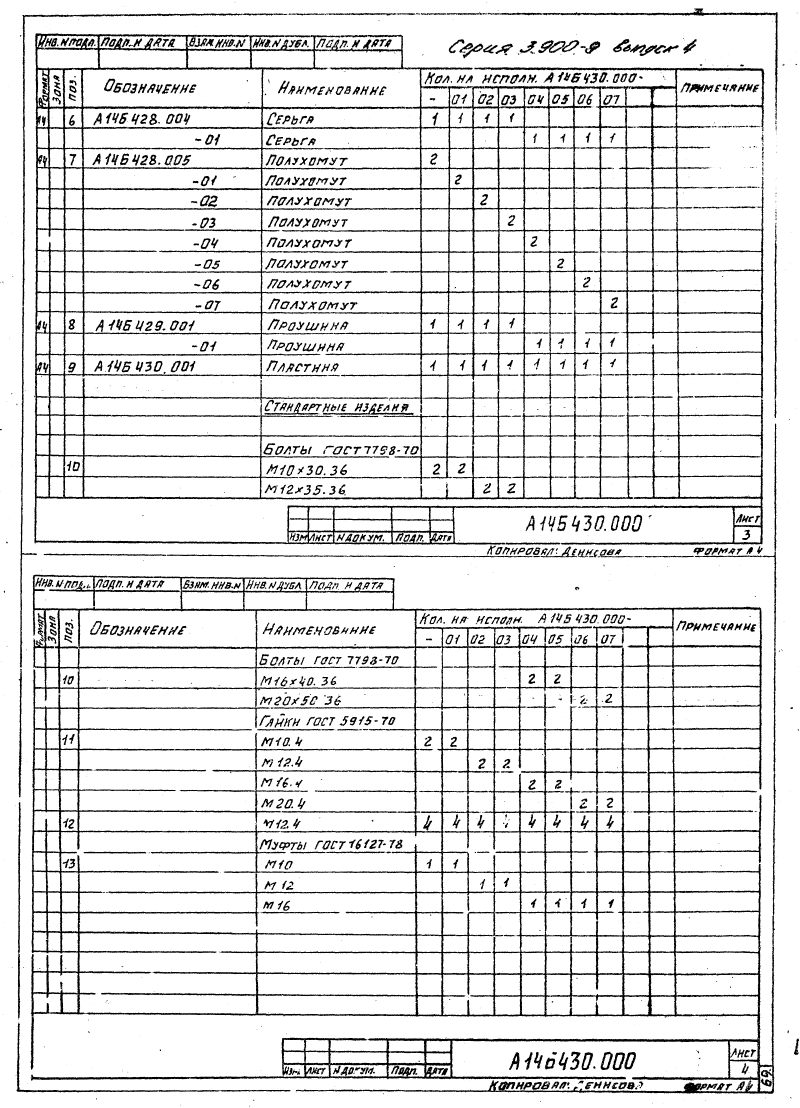 Серия 3.900-9 выпуск 4
Инв. N подл. Подп. и дата Взам. инв. N Инв. N дубл. Подп. и дата
Формат Зона Поз. Обозначение Наименование Кол. на исполн. А14Б430.000- Примечание
- 01 02 03 04 05 06 07
А4 6 А14Б428.004 Серьга 1 1 1 1
-01 Серьга 1 1 1 1
А4 7 А14Б428.005 Полухомут 2
-01 Полухомут 2
-02 Полухомут 2
-03 Полухомут 2
-04 Полухомут 2
-05 Полухомут 2
-06 Полухомут 2
-07 Полухомут 2
А4 8 А14Б429.001 Проушина 1 1 1 1
-01 Проушина 1 1 1 1
А4 9 А14Б430.001 Пластина 1 1 1 1 1 1 1 1
Стандартные изделия
Болты ГОСТ 7798-70
10 М10×30.36 2 2
М12×35.36 2 2
Изм Лист N докум. Подп. Дата А14Б430.000 Лист 3
Копировал: Денисова Формат А4
Инв. N подл. Подп. и дата Взам. инв. N Инв. N дубл. Подп. и дата
Формат Зона Поз. Обозначение Наименование Кол. на исполн. А14Б430.000- Примечание
- 01 02 03 04 05 06 07
Болты ГОСТ 7798-70
10 М16×40.36 2 2
М20×50 36 2 2
Гайки ГОСТ 5915-70
11 М10.4 2 2
М12.4 2 2
М16.4 2 2
М20.4 2 2
12 М12.4 4 4 4 4 4 4 4
Муфты ГОСТ 16127-78
13 М10 1 1
М12 1 1
М16 1 1 1 1
Изм. Лист N докум. Подп. Дата А14Б430.000 Лист 4
Копировал: Денисова Формат А4
69